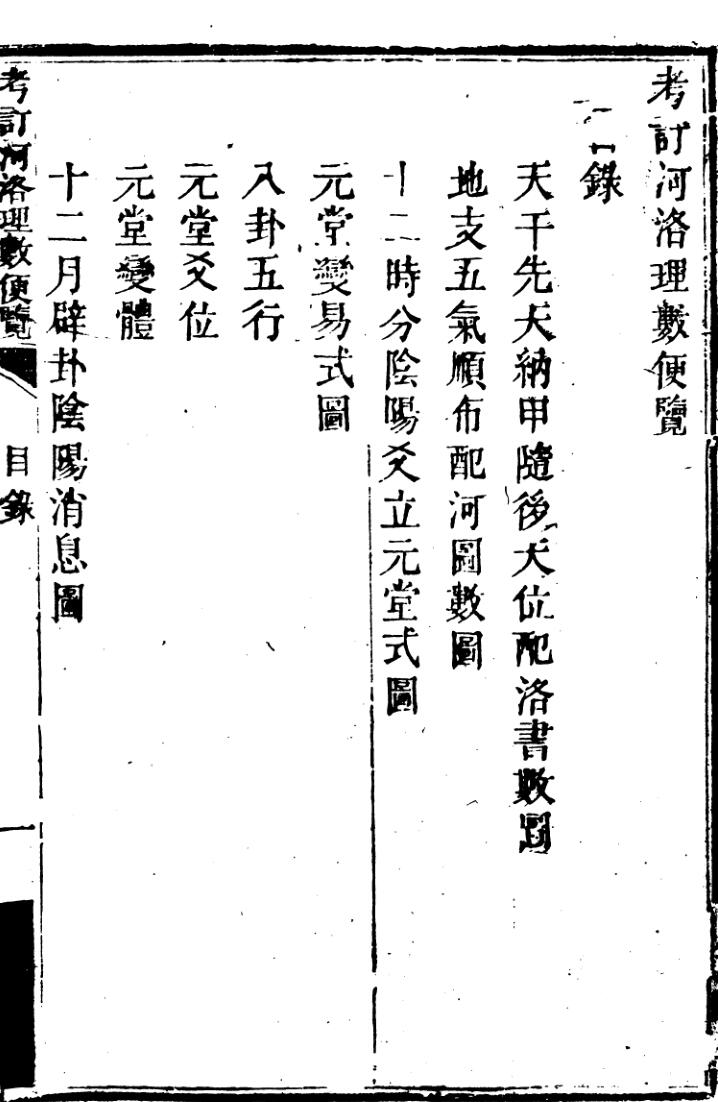 考訂河洛理數便覽
目錄
天干先天納甲隨後天位配洛書數圖
地支五氣順布配河圖數圖
十二時分陰陽爻立元堂式圖
元堂變易式圖
八卦五行
元堂爻位
元堂變體
十二月辟卦陰陽消息圖
考訂河洛理數便覽
目錄
一